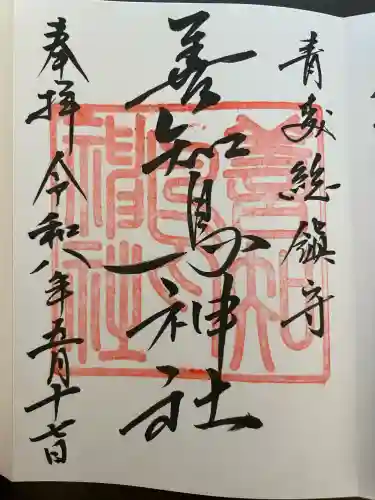 青森総鎮守
善知鳥神社
奉拝 令和八年五月十七日
善知
鳥神
社